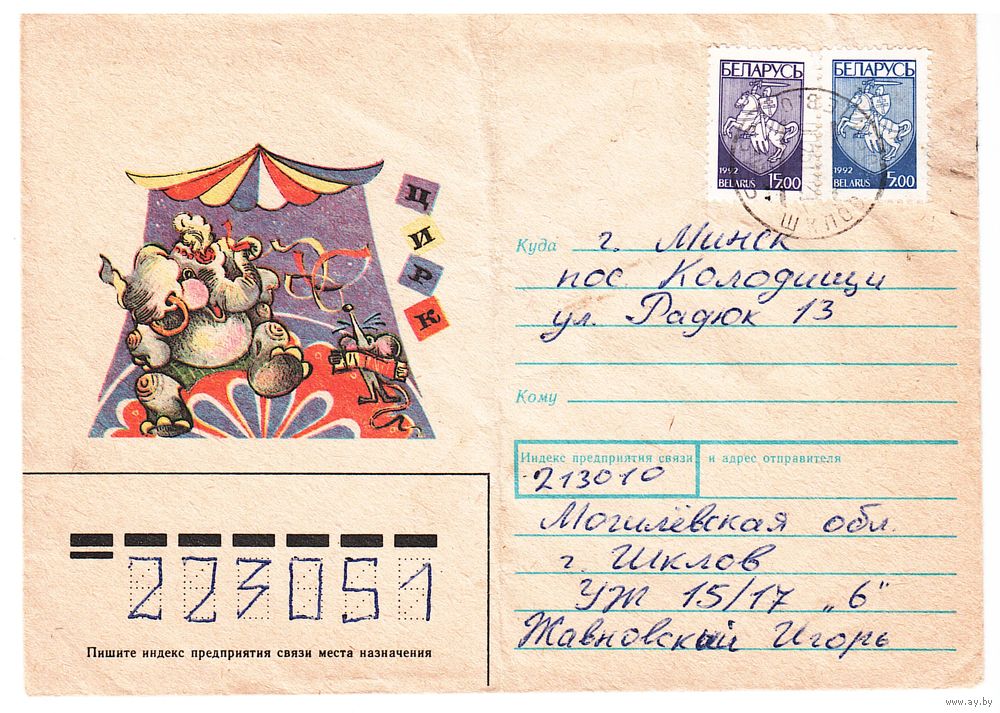 БЕЛАРУСЬ
1992
15.00
BELARUS
БЕЛАРУСЬ
1992
5.00
BELARUS
ШКЛОВ
ЦИРК
Куда г. Минск
пос. Колодищи
ул. Радюк 13
Кому
Индекс предприятия связи и адрес отправителя
213010
Могилёвская обл.
г. Шклов
УЖ 15/17 „6"
Жавновский Игорь
223051
Пишите индекс предприятия связи места назначения
www.ay.by